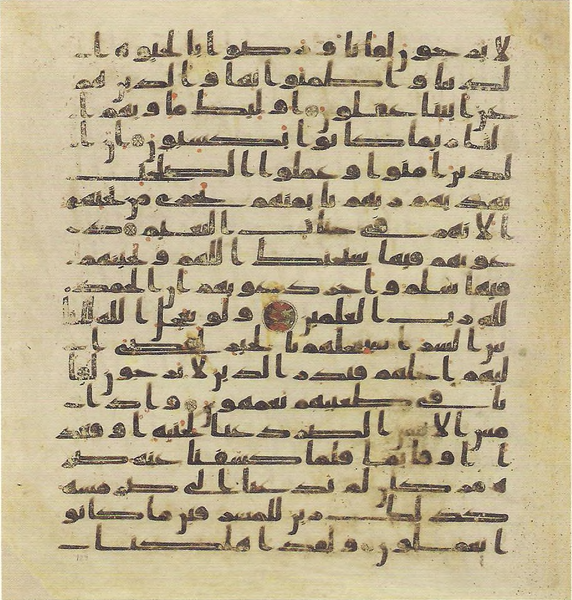 لا يرجون لقانا ورضوا بالحيوه ا
لدنيا واطمنوا بها والذين هم
عن ايتنا غفلون اوليك ماويهم ا
لنار بما كانوا يكسبون ان ا
لذين امنوا وعملوا الصلحت
يهديهم ربهم بايمنهم تجري من تحتهم
الانهر في جنات النعيم د
عويهم فيها سبحنك اللهم وتحيتهم
فيها سلم واخر دعويهم ان الحمد
لله رب العلمين ولو يعجل الله للنا
س الشر استعجلهم بالخير لقضي ا
ليهم اجلهم فنذر الذين لا يرجون لقا
نا في طغينهم يعمهون واذا
مس الانسن الضر دعنا لجنبه او قعد
ا او قايما فلما كشفنا عنه ضر
ه مر كان لم يدعنا الى ضر مسه
كذلك زين للمسرفين ما كانو
ا يعملون ولقد اهلكنا